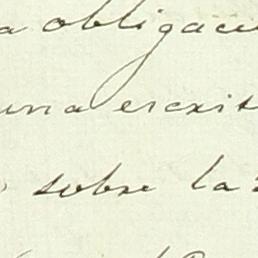 a obligaci
una escrit
sobre la